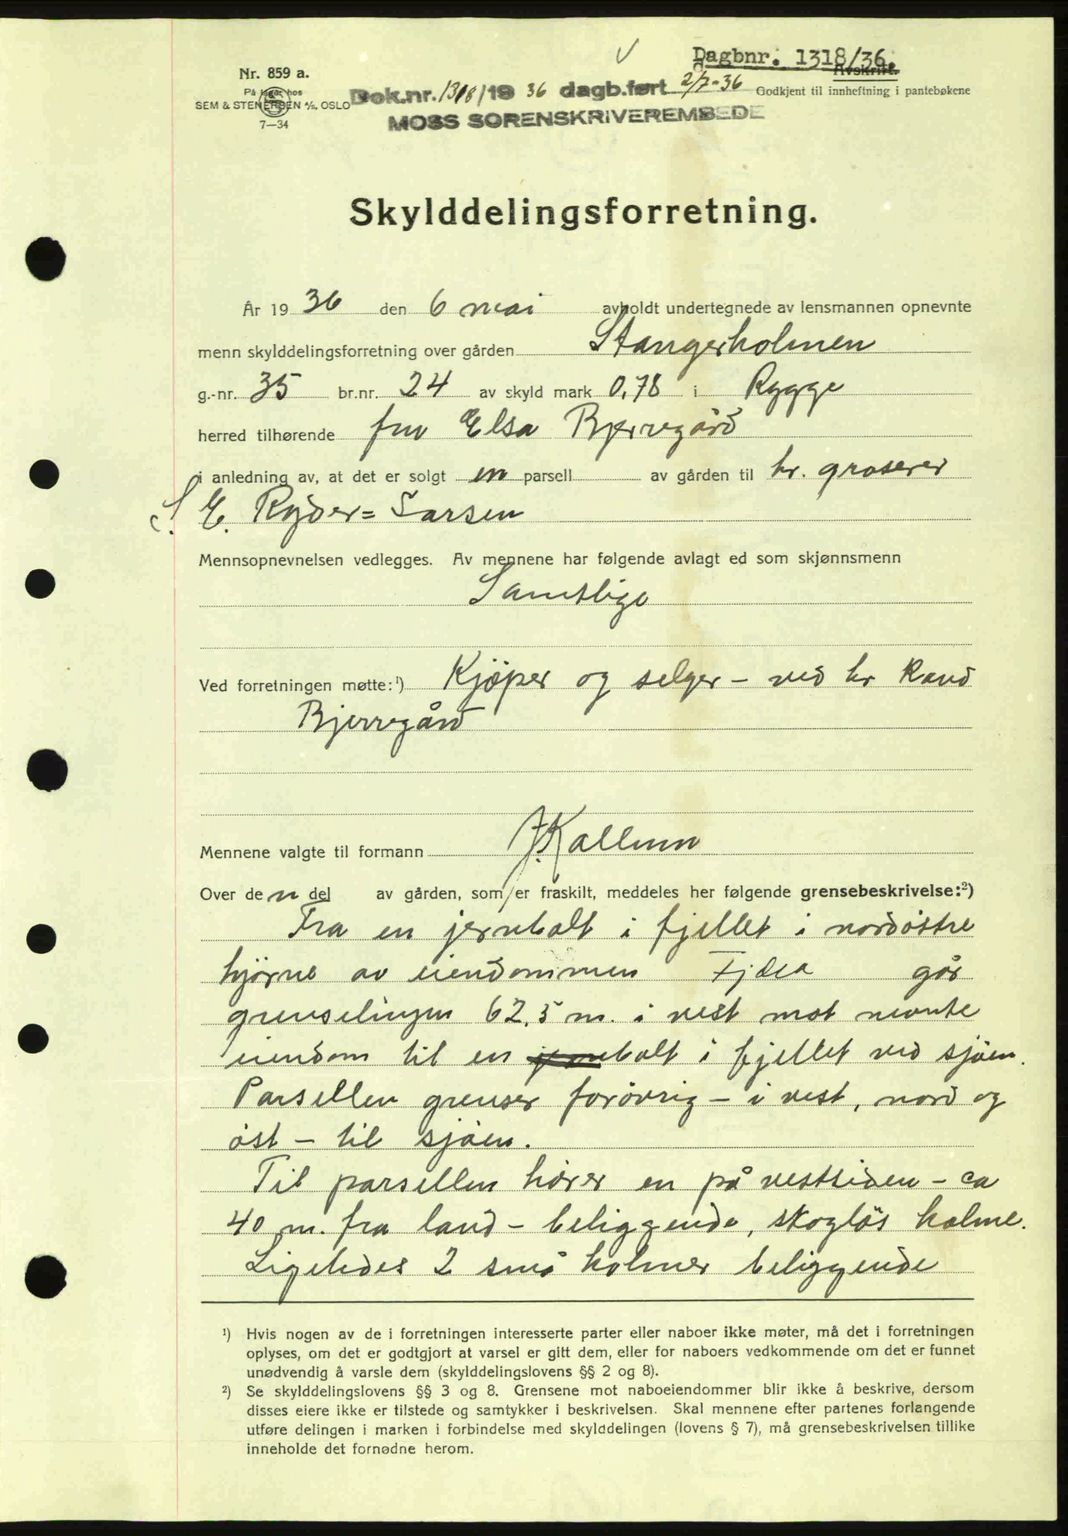 Dagbnr. 1318/36.
Avskrift.
Nr. 859 a.
På lager hos
SEM & STENERSEN A/S, OSLO
7—34
Dok.nr. 1318/1936 dagb.ført 2/7-36
Godkjent til innheftning i pantebøkene
MOSS SORENSKRIVEREMBEDE
Skylddelingsforretning.
År 1936 den 6 mai avholdt undertegnede av lensmannen opnevnte
menn skylddelingsforretning over gården Stangerholmen
g.-nr. 35 br.nr. 24 av skyld mark 0,78 i Rygge
herred tilhørende fru Elsa Bjerregård
i anledning av, at det er solgt en parsell av gården til hr. groserer
S. E. Ryder=Larsen
Mennsopnevnelsen vedlegges. Av mennene har følgende avlagt ed som skjønnsmenn
Samtlige
Ved forretningen møtte:¹) Kjøper og selger – ved hr
Bjerregård
Mennene valgte til formann J. Kallum
Over den del av gården, som er fraskilt, meddeles her følgende grensebeskrivelse:²)
Fra en jernbolt i fjellet i nordöstre
hjørne av eiendommen går
grenselinjen 62,5 m. i vest mot nevnte
eiendom til en bolt i fjellet ved sjöen.
Parsellen grenser forövrig – i vest, nord og
öst – til sjöen.
Til parsellen hører en på vestsiden – ca
40 m. fra land – beliggende, skoglös holme.
Ligeledes 2 små holmer beliggende
¹) Hvis nogen av de i forretningen interesserte parter eller naboer ikke møter, må det i forretningen
oplyses, om det er godtgjort at varsel er gitt dem, eller for naboers vedkommende om det er funnet
unødvendig å varsle dem (skylddelingslovens §§ 2 og 8).
²) Se skylddelingslovens §§ 3 og 8. Grensene mot naboeiendommer blir ikke å beskrive, dersom
disses eiere ikke er tilstede og samtykker i beskrivelsen. Skal mennene efter partenes forlangende
utføre delingen i marken i forbindelse med skylddelingen (lovens § 7), må grensebeskrivelsen tillike
inneholde det fornødne herom.